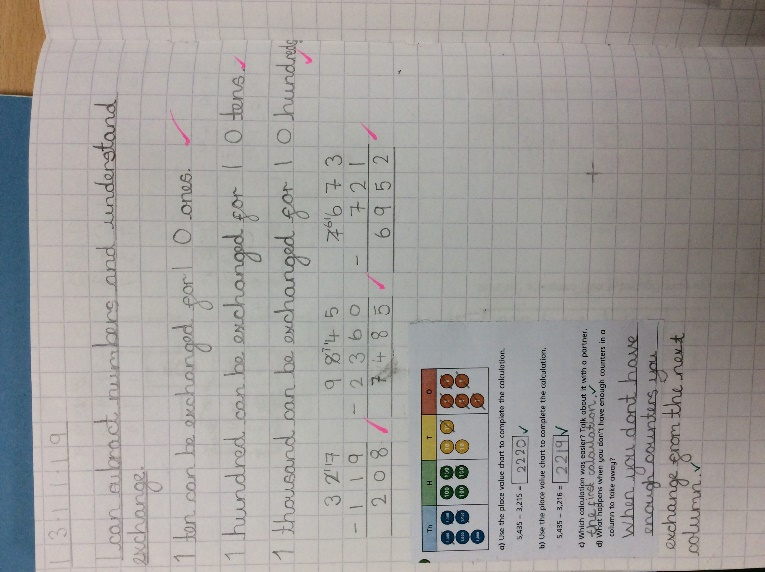 13.11.19
I can subract numbers and understand
exchange.
1 ten can be exchanged for 10 ones.
1 hundred can be exchanged for 10 tens.
1 thousand can be exchanged for 10 hundreds
3 2 17   9 8 7 14 5   7 6 16 7 3
- 1 1 9   - 2 3 6 0   - 7 2 1
2 0 8   7 4 8 5   6 9 5 2
Th H T O
a) Use the place value chart to complete the calculation.
5,435 – 3,215 = 2220
b) Use the place value chart to complete the calculation.
5,435 – 3,216 = 2219
c) Which calculation was easier? Talk about it with a partner.
the first calculation.
d) What happens when you don't have enough counters in a
column to take away?
When you dont have
enough counters you
exchange from the next
column.